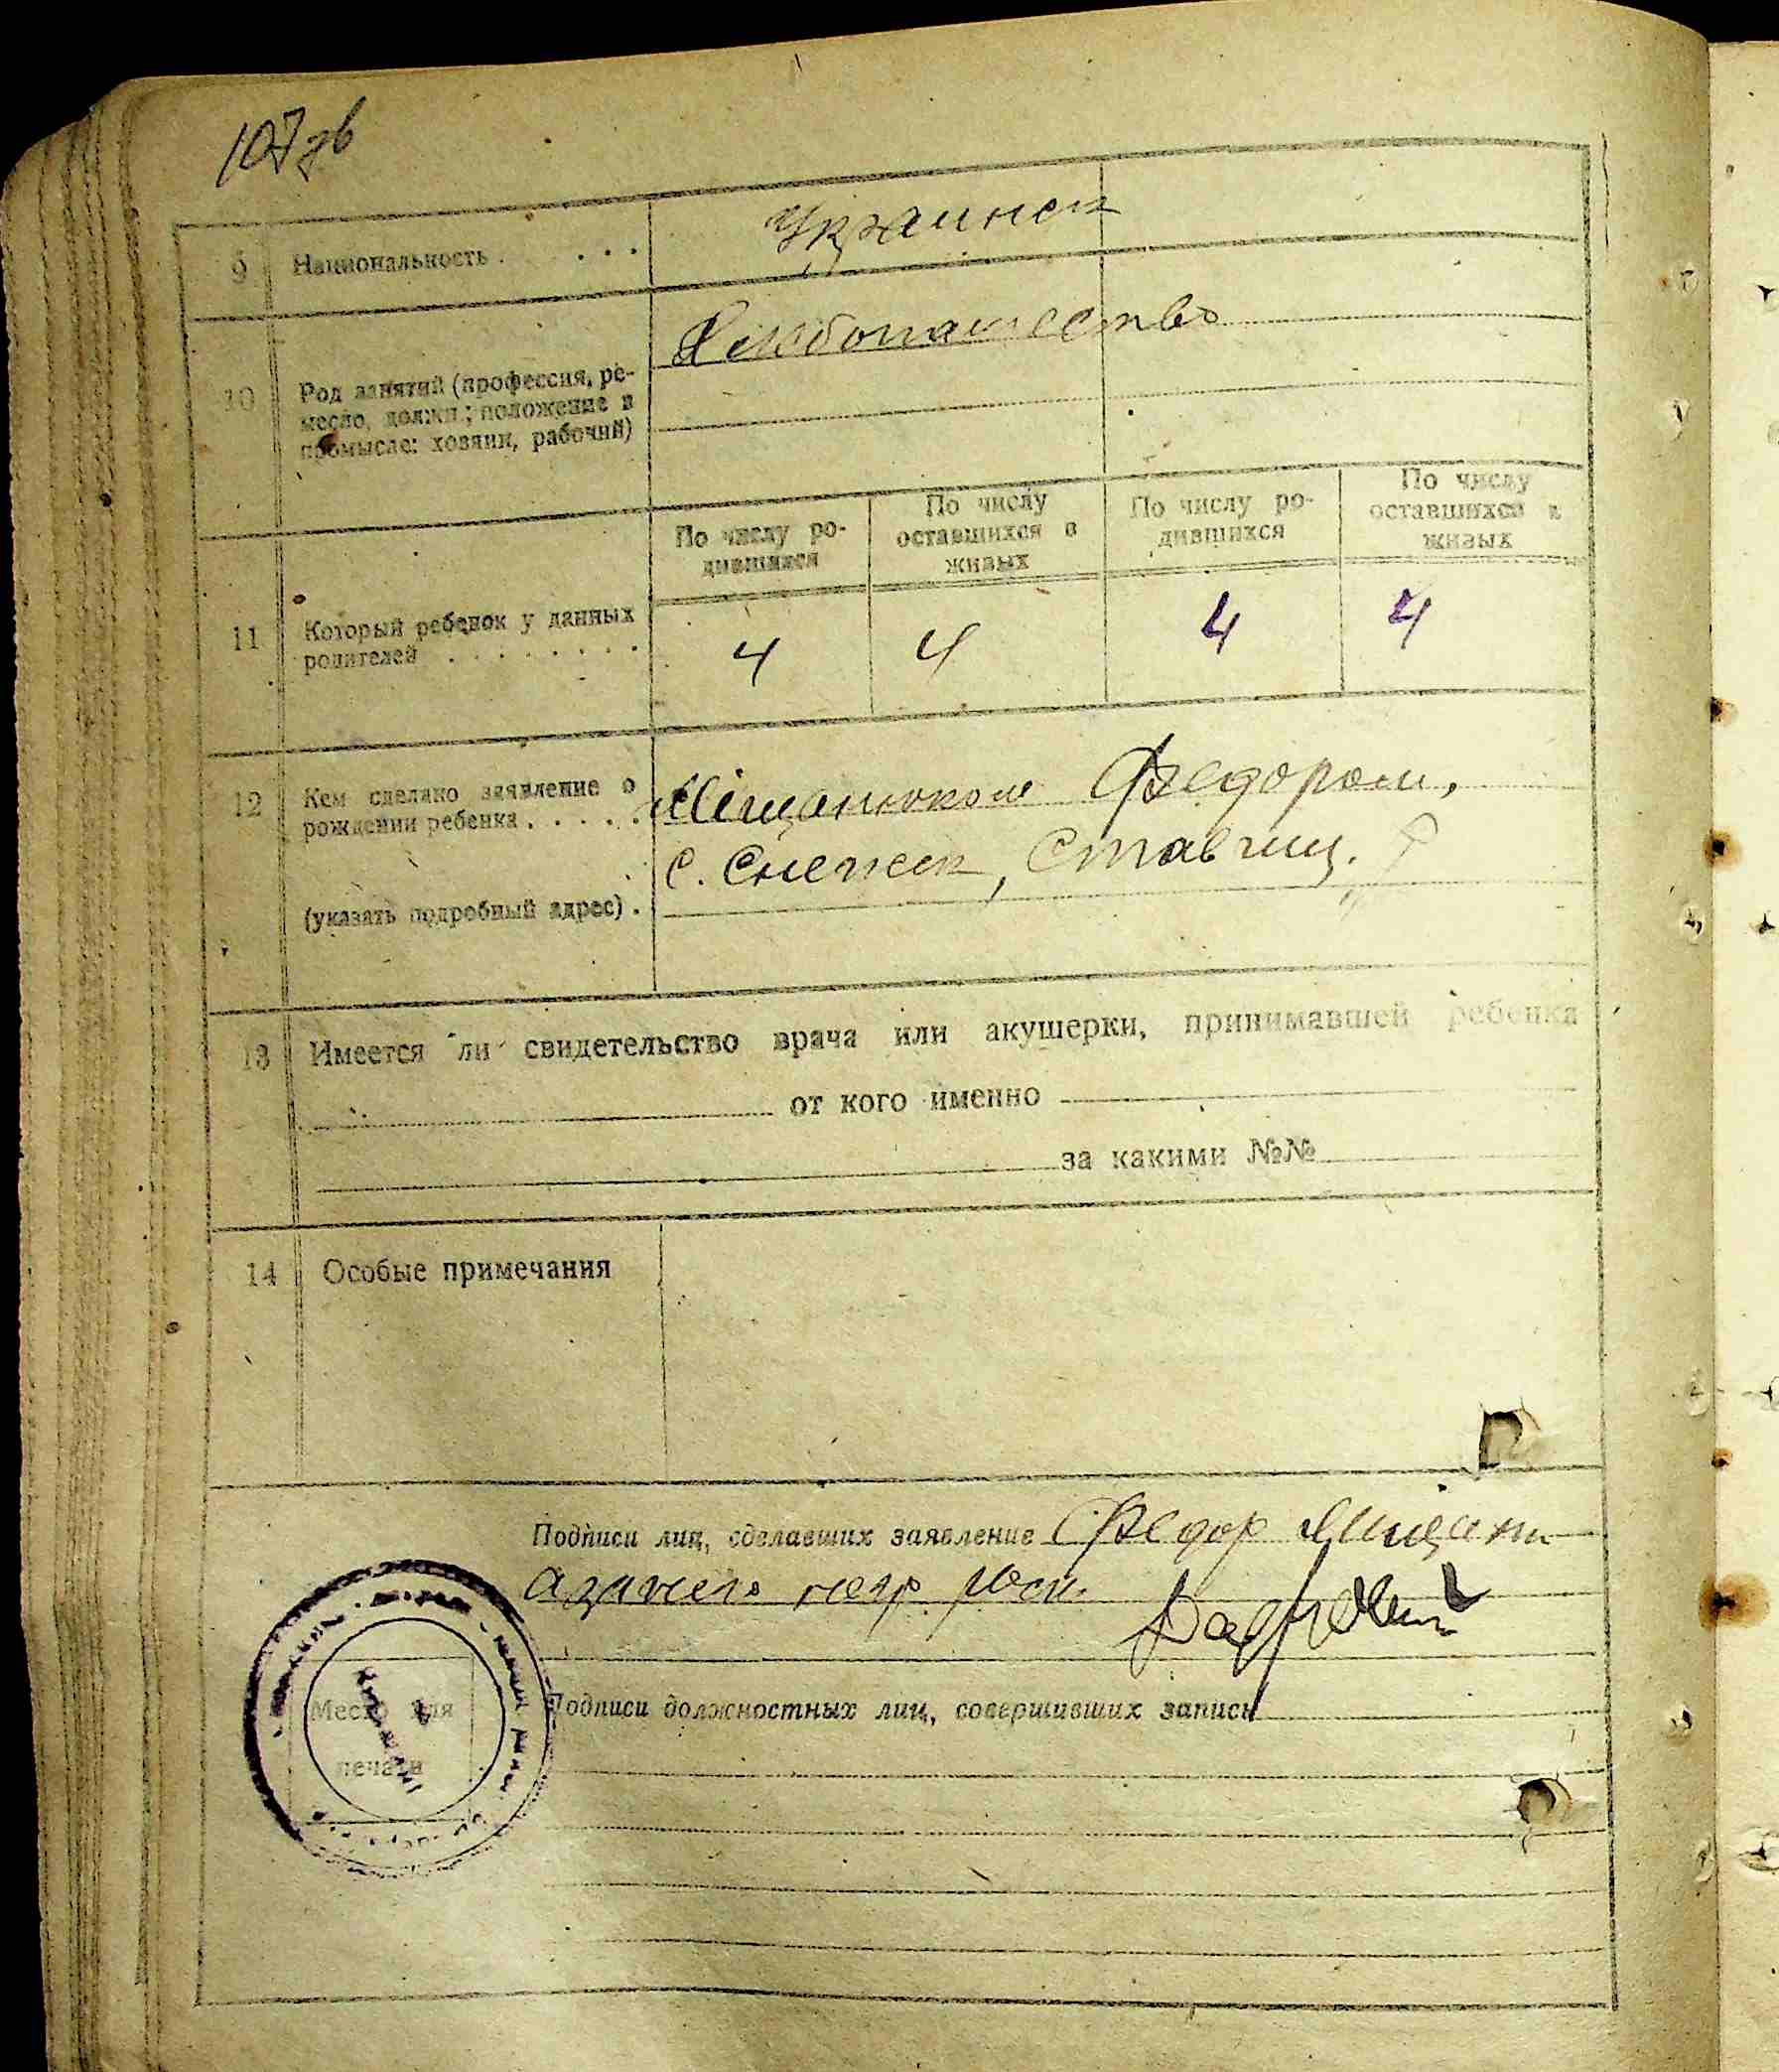 107 зв
9 Национальность . . . . Украинск
10 Род занятий (профессия, ре-
месло, должн.; положение в
промысле: хозяин, рабочий)
Хлебопашество
По числу ро-
дившихся
По числу
оставшихся в
живых
По числу ро-
дившихся
По числу
оставшихся в
живых
11 Который ребенок у данных
родителей . . . . . . . .
4 4 4 4
12 Кем сделано заявление о
рождении ребенка . . . . .
(указать подробный адрес) .
Міщанюком Федором,
с. Снежк, Ставищ.
13 Имеется ли свидетельство врача или акушерки, принимавшей ребенка
от кого именно
за какими №№
14 Особые примечания
Подписи лиц, сделавших заявление Федор Міщан
а за него негр. росп.
Место для
печати
Подписи должностных лиц, совершивших запись